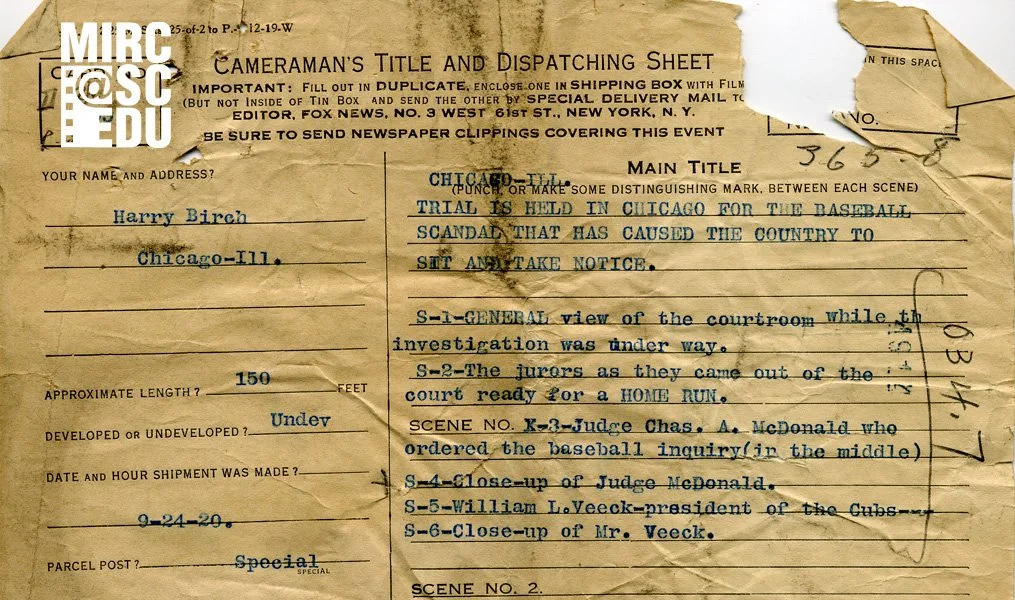 25-of-2 to P. 12-19-W
MIRC
@SC
EDU
CAMERAMAN'S TITLE AND DISPATCHING SHEET
IMPORTANT: FILL OUT IN DUPLICATE, ENCLOSE ONE IN SHIPPING BOX WITH FILM
(BUT NOT INSIDE OF TIN BOX AND SEND THE OTHER BY SPECIAL DELIVERY MAIL TO
EDITOR, FOX NEWS, NO. 3 WEST 61ST ST., NEW YORK, N. Y.
BE SURE TO SEND NEWSPAPER CLIPPINGS COVERING THIS EVENT
IN THIS SPAC
NO.
365-8
YOUR NAME AND ADDRESS?
Harry Birch
Chicago-Ill.
APPROXIMATE LENGTH? 150 FEET
DEVELOPED OR UNDEVELOPED? Undev
DATE AND HOUR SHIPMENT WAS MADE?
9-24-20.
PARCEL POST? Special
SPECIAL
MAIN TITLE
CHICAGO-ILL.
(PUNCH, OR MAKE SOME DISTINGUISHING MARK, BETWEEN EACH SCENE)
TRIAL IS HELD IN CHICAGO FOR THE BASEBALL
SCANDAL THAT HAS CAUSED THE COUNTRY TO
SIT AND TAKE NOTICE.
S-1-GENERAL view of the courtroom while th
investigation was under way.
S-2-The jurors as they came out of the
court ready for a HOME RUN.
SCENE NO. X-3-Judge Chas. A. McDonald who
ordered the baseball inquiry(in the middle)
S-4-Close-up of Judge McDonald.
S-5-William L.Veeck-president of the Cubs---
S-6-Close-up of Mr. Veeck.
SCENE NO. 2.
6347.7